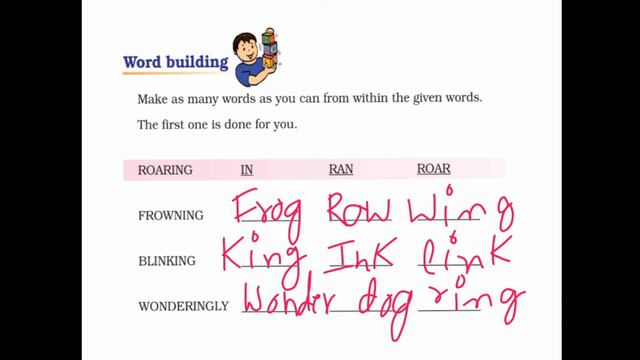 Word building
Make as many words as you can from within the given words.
The first one is done for you.
ROARING IN RAN ROAR
FROWNING Frog Row Wing
BLINKING King Ink link
WONDERINGLY Wonder dog ring